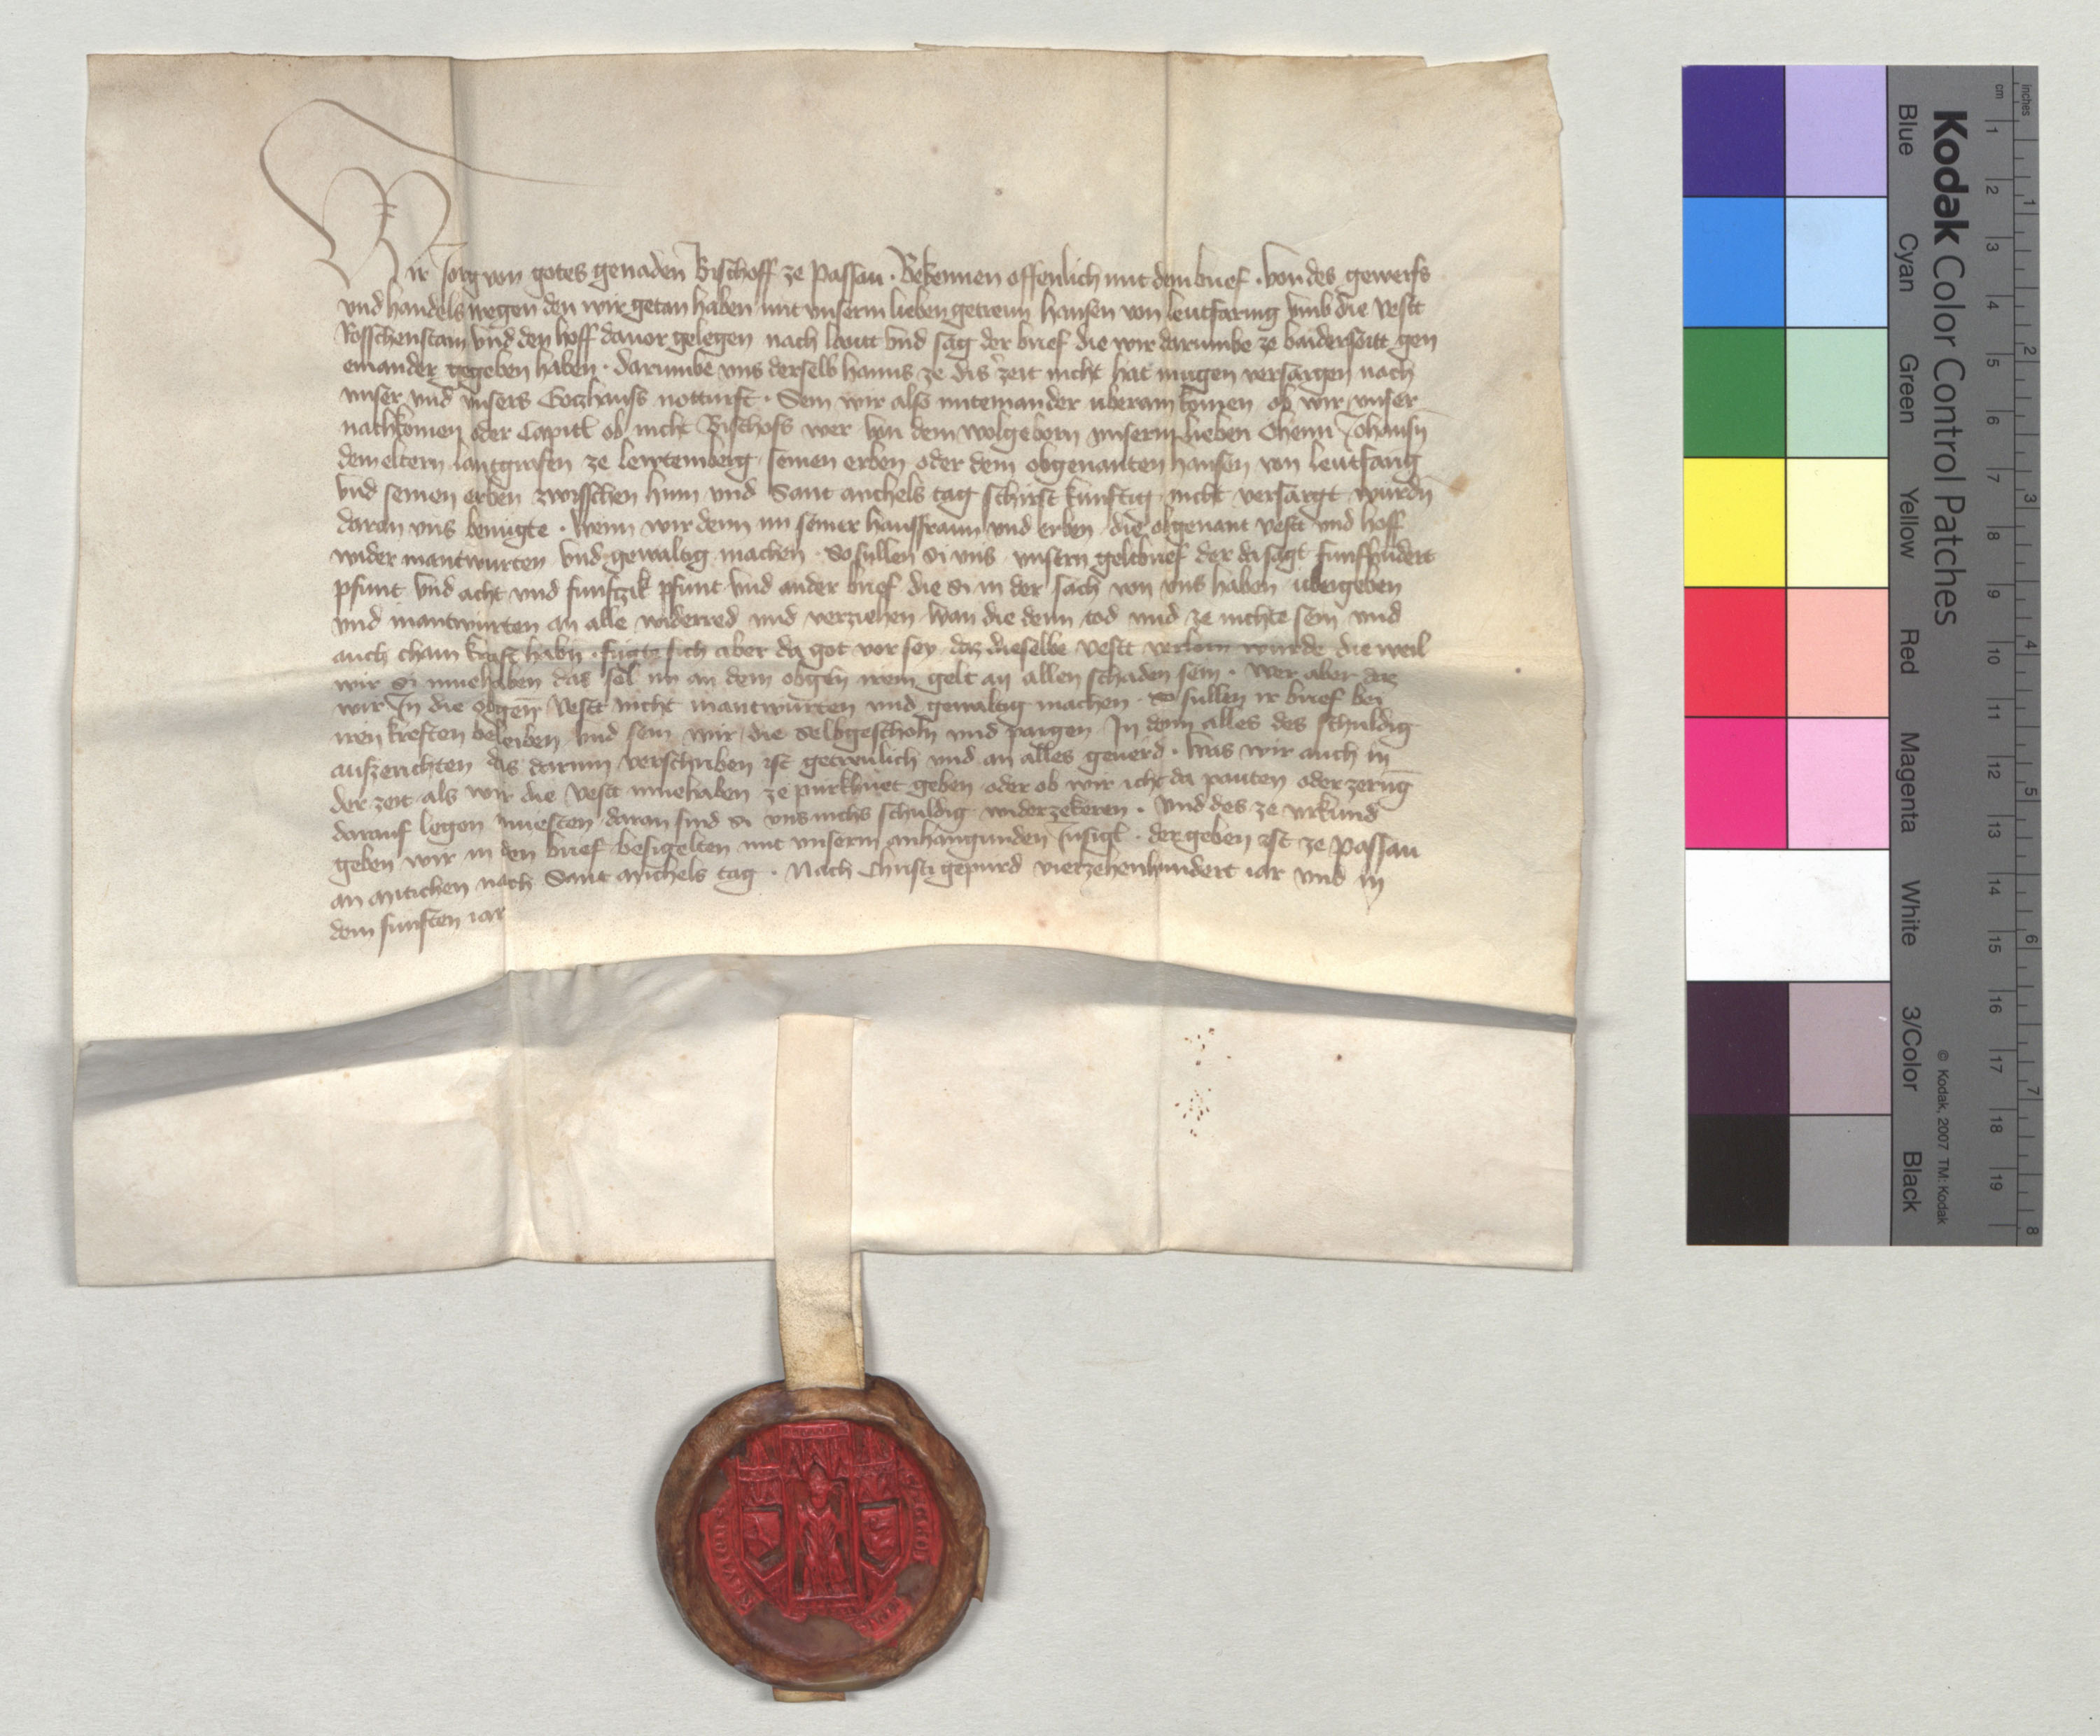 Wir Jorg von gotes genaden Bischoff ze Passau · Bekennen offenlich mit dem brief · von des gewerfs
und handels wegen den wir getan haben mit unserm lieben getrewn Hansen von Leutfaring umb die Vestt
Rosschenstain und den hoff davor gelegen nach lautt und sag der brief die wir darumbe ze baidersoitt gen
einander gegeben haben · darumbe uns derselb Hanns ze dis zeit nicht hat mugen versargen nach
unser und unsers Gotzhauss notturft · Sein wir also miteinander uberain komen ob wir unser
nachkomen oder Capitl ob nicht Bischofs wer von dem wolgeborn unserm lieben Ohem Johansn
dem eltern lantgrafen ze Lewtemberg seinen erben oder dem obgenanten Hansen von Leutfaring
und seinen erben zwisschen hinn und Sant Michels tag schirst kunftig nicht versargt wurdn
daran uns benugte · Wenn wir denn im seiner hausfrawn und erben die obgenant vestt und hoff
wider inantwurten und gewaltig machen · So sullen si uns unsern geltbrief der da sagt funfhundert
pfunt und acht und funftzik pfunt und ander brief die si in der sach von uns haben ubergeben
und inantwurten an alle widerred und verziehen wan die denn tod und ze nichte sein und
auch chain kraft habn · fugte sich aber da got vor sey daz dieselbe vestt verlorn wurde die weil
wir si innehaben das sol im an dem obgen irem gelt an allen schaden sein · Wer aber daz
wir In die obgen Vestt nicht inantwurten und gewaltig machen · so sullen ir brief bei
iren kreften beleiben und sein wir die Selbgescholn und pargen In dem alles des schuldig
aufzerichten das darinn verschriben ist getrewlich und an alles geverd · Was wir auch in
der zeit als wir die vestt innehaben ze purkhuet geben oder ob wir icht da pauten oder zerung
darauf legen muesten daran sind si uns nichs schuldig widerzekeren · Und des ze urkund
geben wir in den brief besigelten mit unserm anhangunden Insigl · der geben ist ze Passau
an Mitichen nach Sant Michels tag · Nach Christi gepurd vierzehenhundert iar und in
dem funften iar
Kodak Color Control Patches
Blue Cyan Green Yellow Red Magenta White 3/Color Black
© Kodak, 2007 TM: Kodak
cm 1 2 3 4 5 6 7 8 9 10 11 12 13 14 15 16 17 18 19
inches 1 2 3 4 5 6 7 8